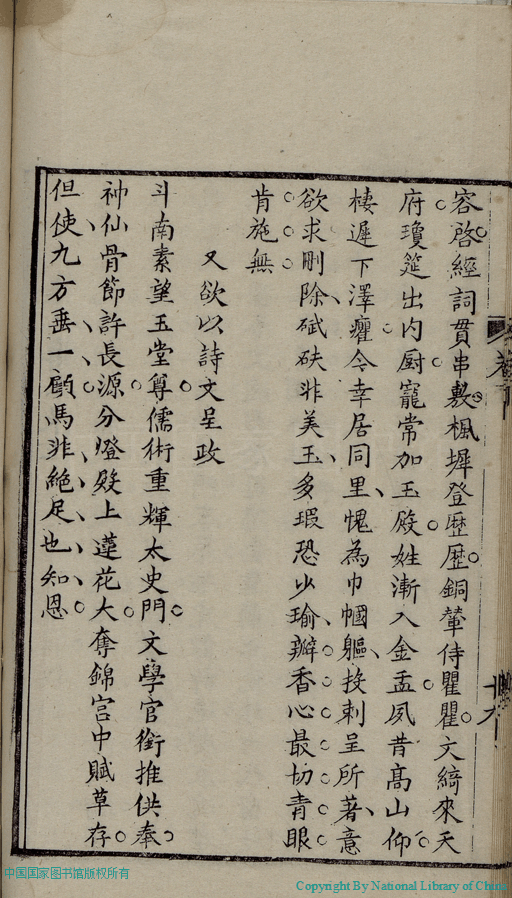 容啓經詞貫串敷楓墀登歷歷銅輦侍瞿瞿文綺來天
府瓊筵出内厨寵常加玉殿姓漸入金盂夙昔高山仰
棲遲下澤癯今幸居同里愧為巾幗軀投刺呈所著意
欲求刪除碔砆非美玉多瑕恐少瑜瓣香心最切青眼
肯施無
又欲以詩文呈政
斗南素望玉堂尊儒術重輝太史門文學官銜推供奉
神仙骨節許長源分燈殿上蓮花大奪錦宫中賦草存
但使九方垂一顧馬非絶足也知恩
十九
中国国家图书馆版权所有
Copyright By National Library of China